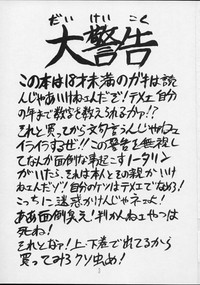 だいけいこく
大警告
この本は18才未満のガキは読
んじゃあいけねェんだぞ！テメェ自分
の年まで数字を数えられるかァ!?
それと買ってから文句言うんじゃねェ
イライラするぜ！この警告を無視し
てなんか面倒な事起こすノータリン
がいたら、それは本人とその親がいけ
ねェんだゾ！自分のケツはテメェでなめろ！
こっちに迷惑かけんじゃネェっ！
ああ面倒臭え！判かんねェやつは
死ね！
それとなァ！上・下巻で出てるから
買ってみろクソ虫め！